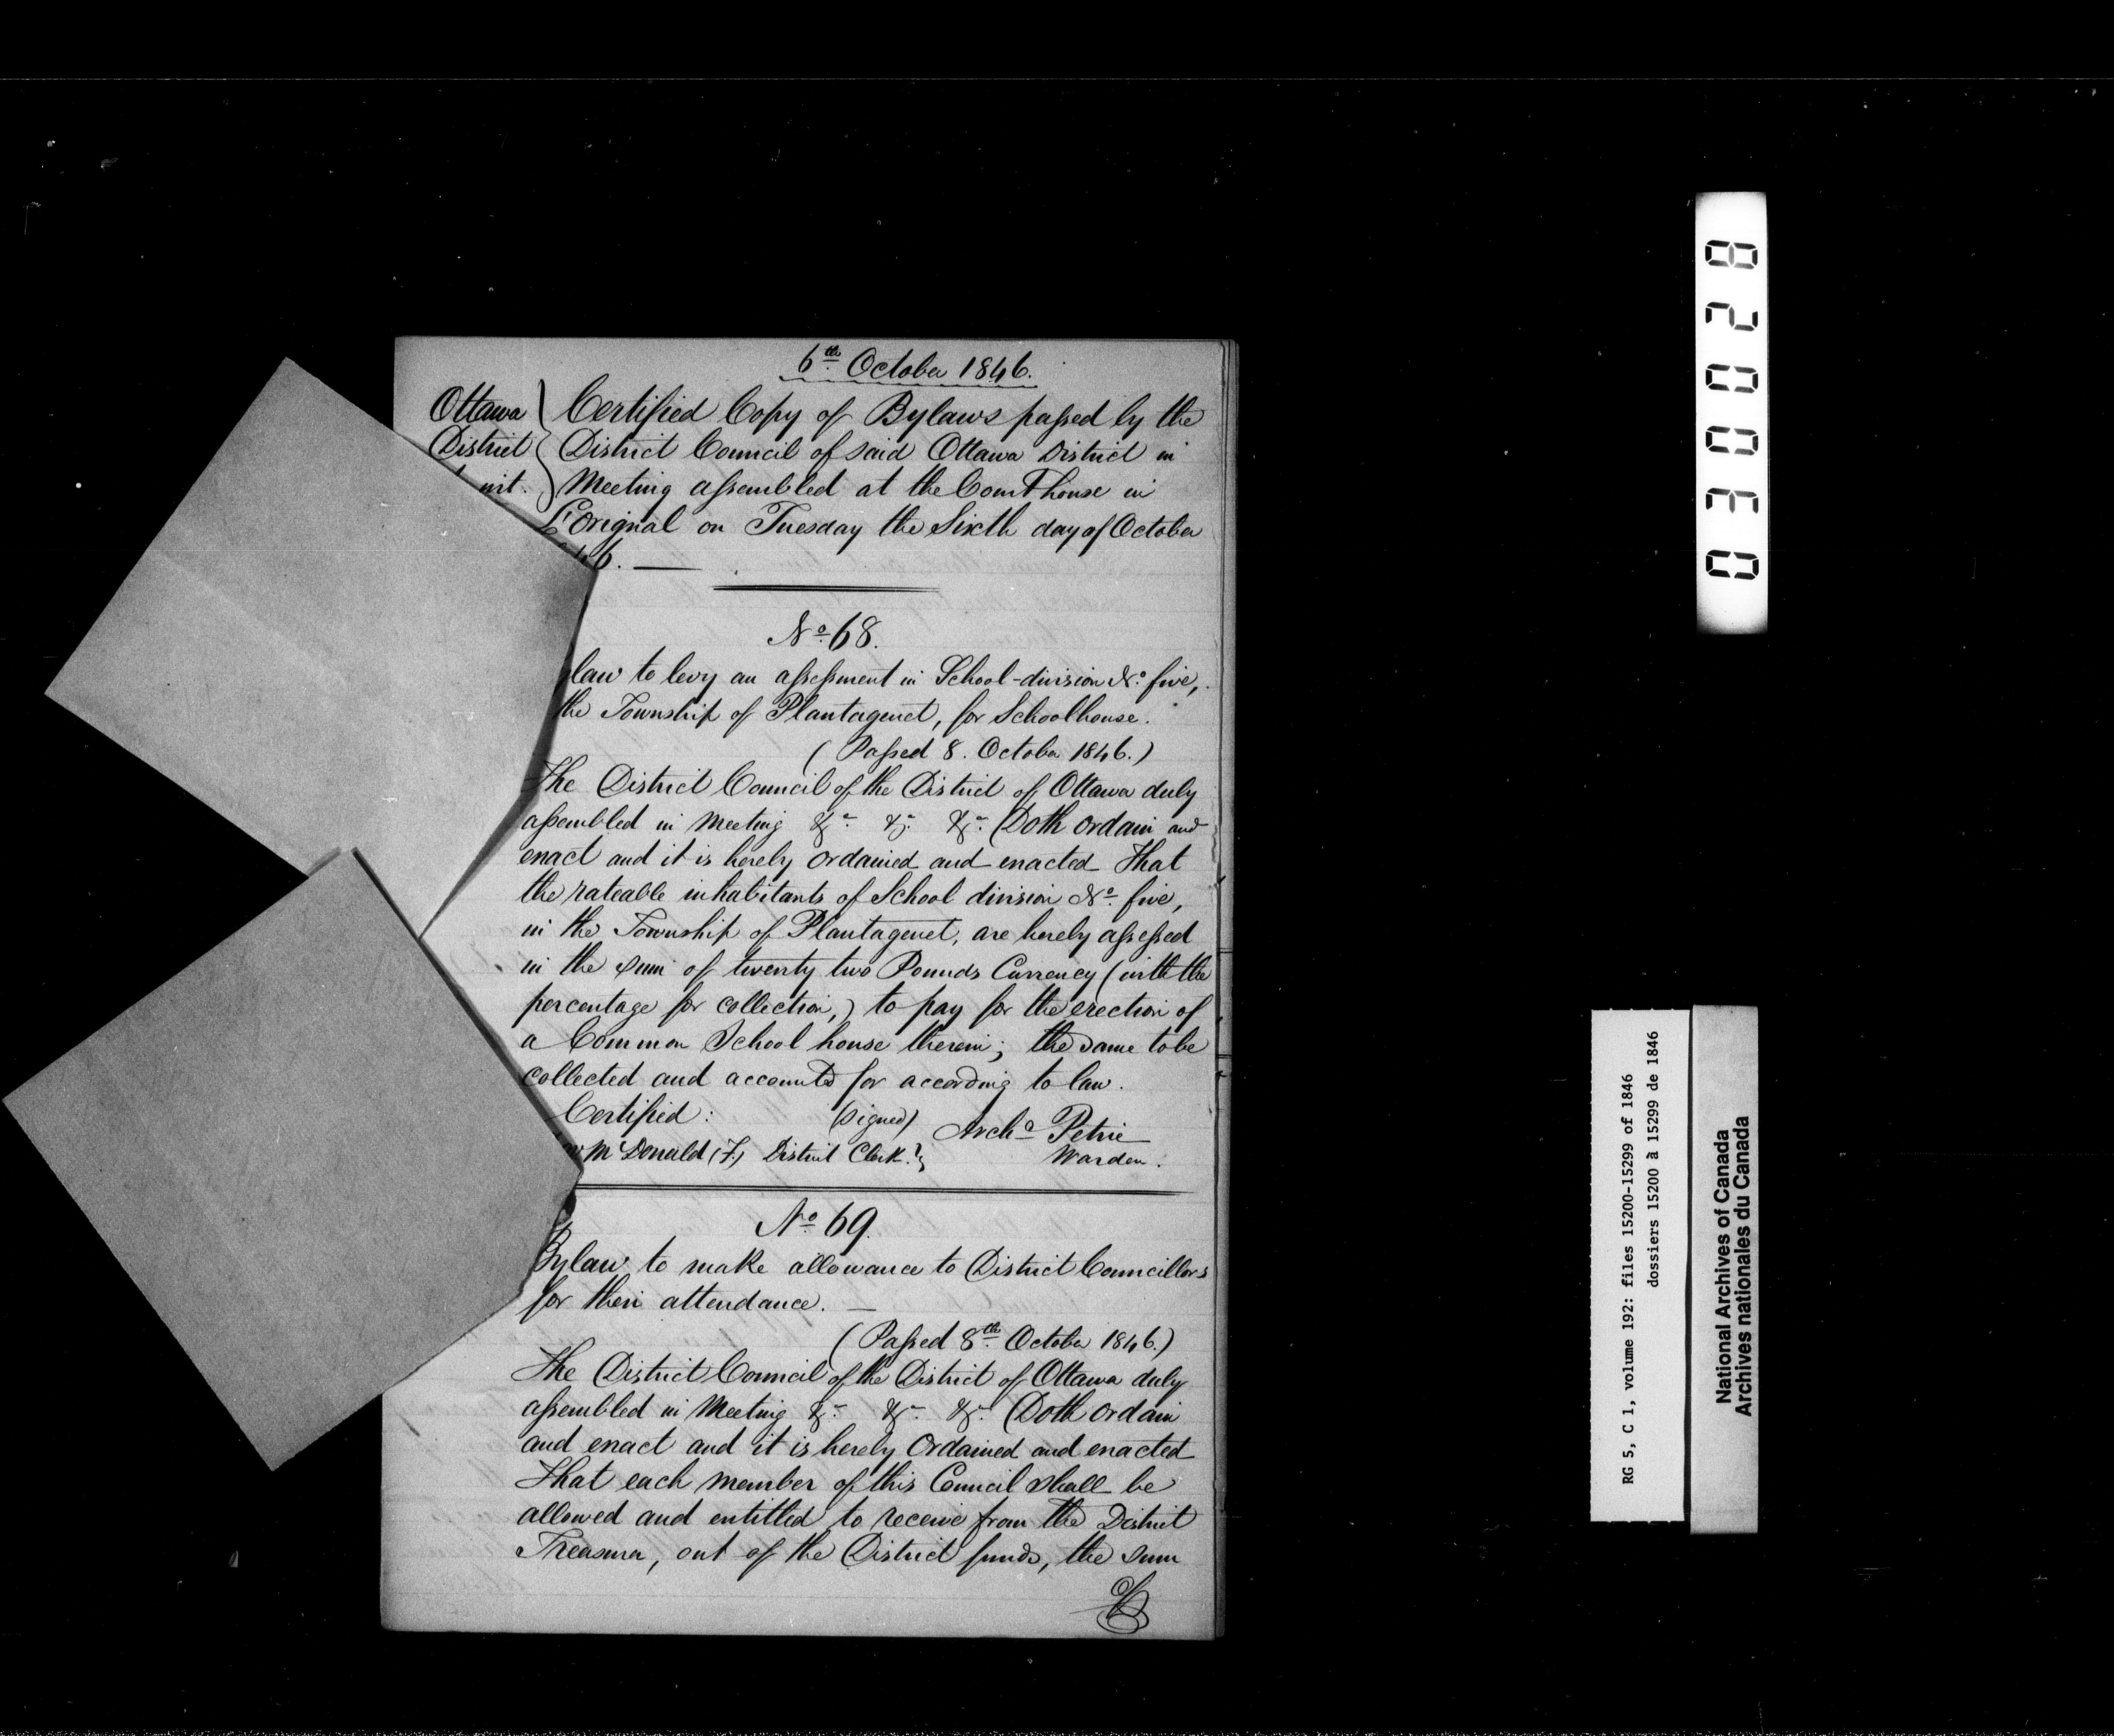 6th October 1846.
Ottawa Certified Copy of Bylaws passed by the
District District Council of said Ottawa District in
wit. Meeting assembled at the Court house in
L'Orignal on Tuesday the Sixth day of October
46. —
No. 68.
law to levy an assessment in School-division No. five,
the Township of Plantagenet, for Schoolhouse.
(Passed 8. October 1846.)
The District Council of the District of Ottawa duly
assembled in Meeting &c. &c. &c. Doth ordain and
enact and it is hereby ordained and enacted That
the rateable inhabitants of School division No. five,
in the Township of Plantagenet, are hereby assessed
in the sum of twenty two Pounds Currency (with the
percentage for collection,) to pay for the erection of
a Common School house therein; the same to be
collected and accounted for according to law.
Certified: (Signed) Archd Petrie
McDonald (F.) District Clerk. Warden.
No. 69.
Bylaw to make allowance to District Councillors
for their attendance. —
(Passed 8th October 1846.)
The District Council of the District of Ottawa duly
assembled in Meeting &c. &c. &c. Doth ordain
and enact and it is hereby Ordained and enacted
That each member of this Council shall be
allowed and entitled to receive from the District
Treasurer, out of the District funds, the sum
030028
RG 5, C 1, volume 192: files 15200-15299 of 1846
dossiers 15200 à 15299 de 1846
National Archives of Canada
Archives nationales du Canada